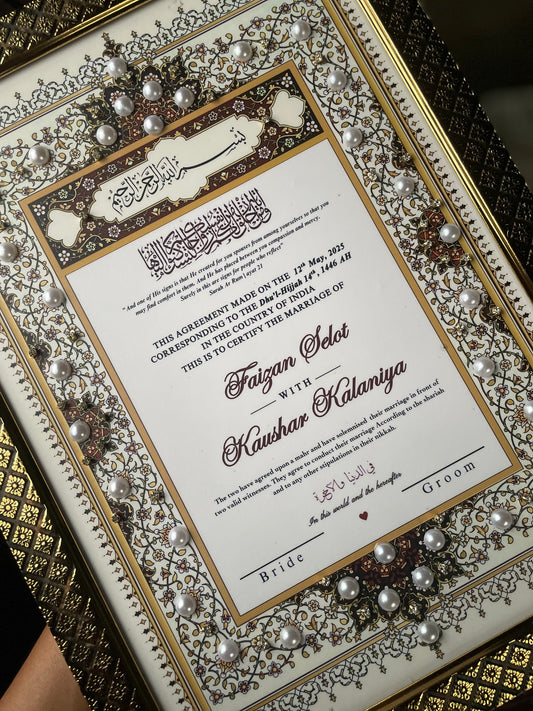 بسم الله الرحمن الرحيم
" And one of His signs is that He created for you spouses from among yourselves so that you
may find comfort in them. And He has placed between you compassion and mercy.
Surely in this are signs for people who reflect"
Surah Ar Rum ( ayat 21
THIS AGREEMENT MADE ON THE 12th May, 2025
CORRESPONDING TO THE Dhu'l-Hijjah 14th, 1446 AH
IN THE COUNTRY OF INDIA
THIS IS TO CERTIFY THE MARRIAGE OF
Faizan Selot
WITH
Kaushar Kalaniya
The two have agreed upon a mahr and have solemnised their marriage in front of
two valid witnesses. They agree to conduct their marriage According to the shariah
and to any other stipulations in their nikkah.
في الدنيا والآخرة
In this world and the hereafter
Bride
Groom